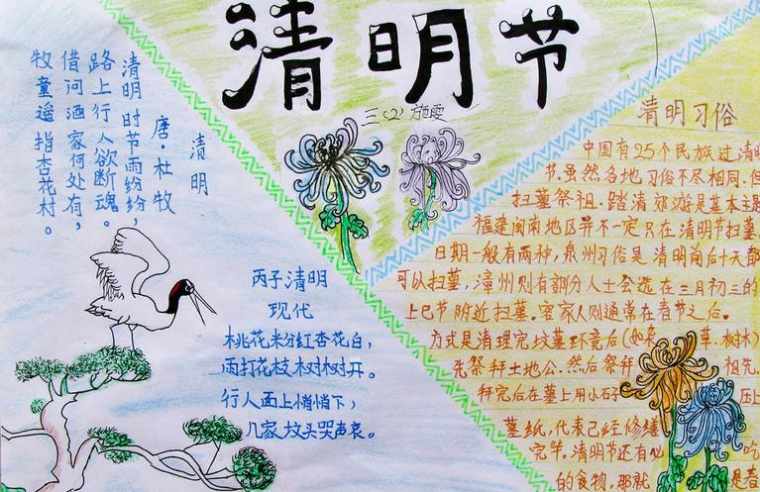 清明节
三(2) 施雯
清明
唐·杜牧
清明时节雨纷纷,
路上行人欲断魂。
借问酒家何处有,
牧童遥指杏花村。
丙子清明
现代
桃花粉红杏花白,
雨打花枝树树开。
行人面上悄悄下,
几家坟头哭声哀。
清明习俗
中国有25个民族过清明
节,虽然各地习俗不尽相同,但
扫墓祭祖、踏清郊游是基本主题
福建闽南地区并不一定只在清明节扫墓,
日期一般有两种,泉州习俗是清明前后十天都
可以扫墓,漳州则有部分人士会选在三月初三的
上巳节附近扫墓。客家人则通常在春节之后。
方式是清理完坟墓环境后(如 草、树木)
先祭拜土地公、然后祭拜 祖先。
拜完后在墓上用小石子 压上
墓纸,代表已经修缮
完毕。清明节还有 吃
的食物,那就 是春